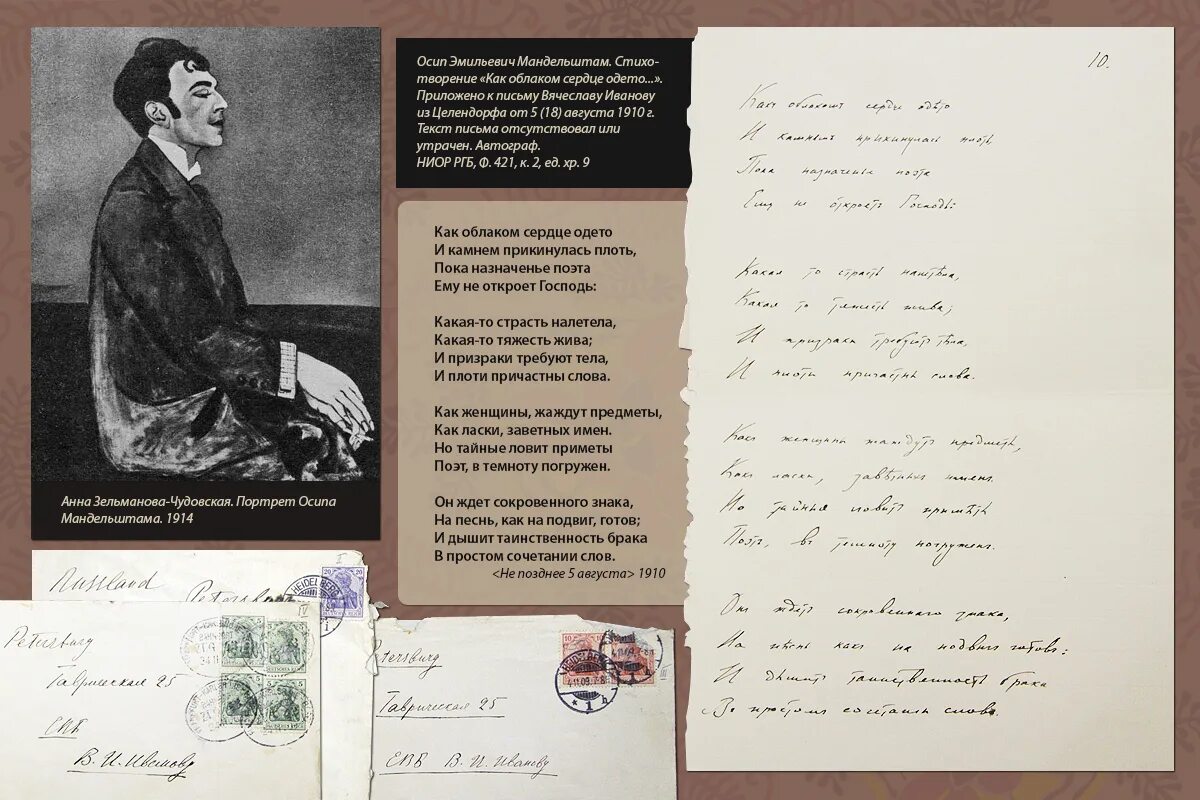 Осип Эмильевич Мандельштам. Стихо-
творение «Как облаком сердце одето...».
Приложено к письму Вячеславу Иванову
из Целендорфа от 5 (18) августа 1910 г.
Текст письма отсутствовал или
утрачен. Автограф.
НИОР РГБ, Ф. 421, к. 2, ед. хр. 9
Анна Зельманова-Чудовская. Портрет Осипа
Мандельштама. 1914
Как облаком сердце одето
И камнем прикинулась плоть,
Пока назначенье поэта
Ему не откроет Господь:
Какая-то страсть налетела,
Какая-то тяжесть жива;
И призраки требуют тела,
И плоти причастны слова.
Как женщины, жаждут предметы,
Как ласки, заветных имен.
Но тайные ловит приметы
Поэт, в темноту погружен.
Он ждет сокровенного знака,
На песнь, как на подвиг, готов;
И дышит таинственность брака
В простом сочетании слов.
<Не позднее 5 августа> 1910
10.
Какъ облакомъ сердце одѣто
И камнемъ прикинулась плоть,
Пока назначенье поэта
Ему не откроетъ Господь:
Какая то страсть налетѣла,
Какая то тяжесть жива;
И призраки требуютъ тѣла,
И плоти причастны слова.
Какъ женщины жаждутъ предметы,
Какъ ласки, завѣтныхъ именъ.
Но тайные ловитъ примѣты
Поэтъ, въ темноту погруженъ.
Онъ ждетъ сокровеннаго знака,
На пѣснь какъ на подвигъ готовъ:
И дышитъ таинственность брака
Въ простомъ сочетаньи словъ.
Russland
Petersburg
20 20
HEIDELBERG
Petersburg
Таврическая 25
СПБ
В. И. Иванову
tersburg
Таврическая 25
СПБ В. И. Иванову
10 10
HEIDELBERG
4.11.09. 7-8
* 1 h
4.11.09. 7-8